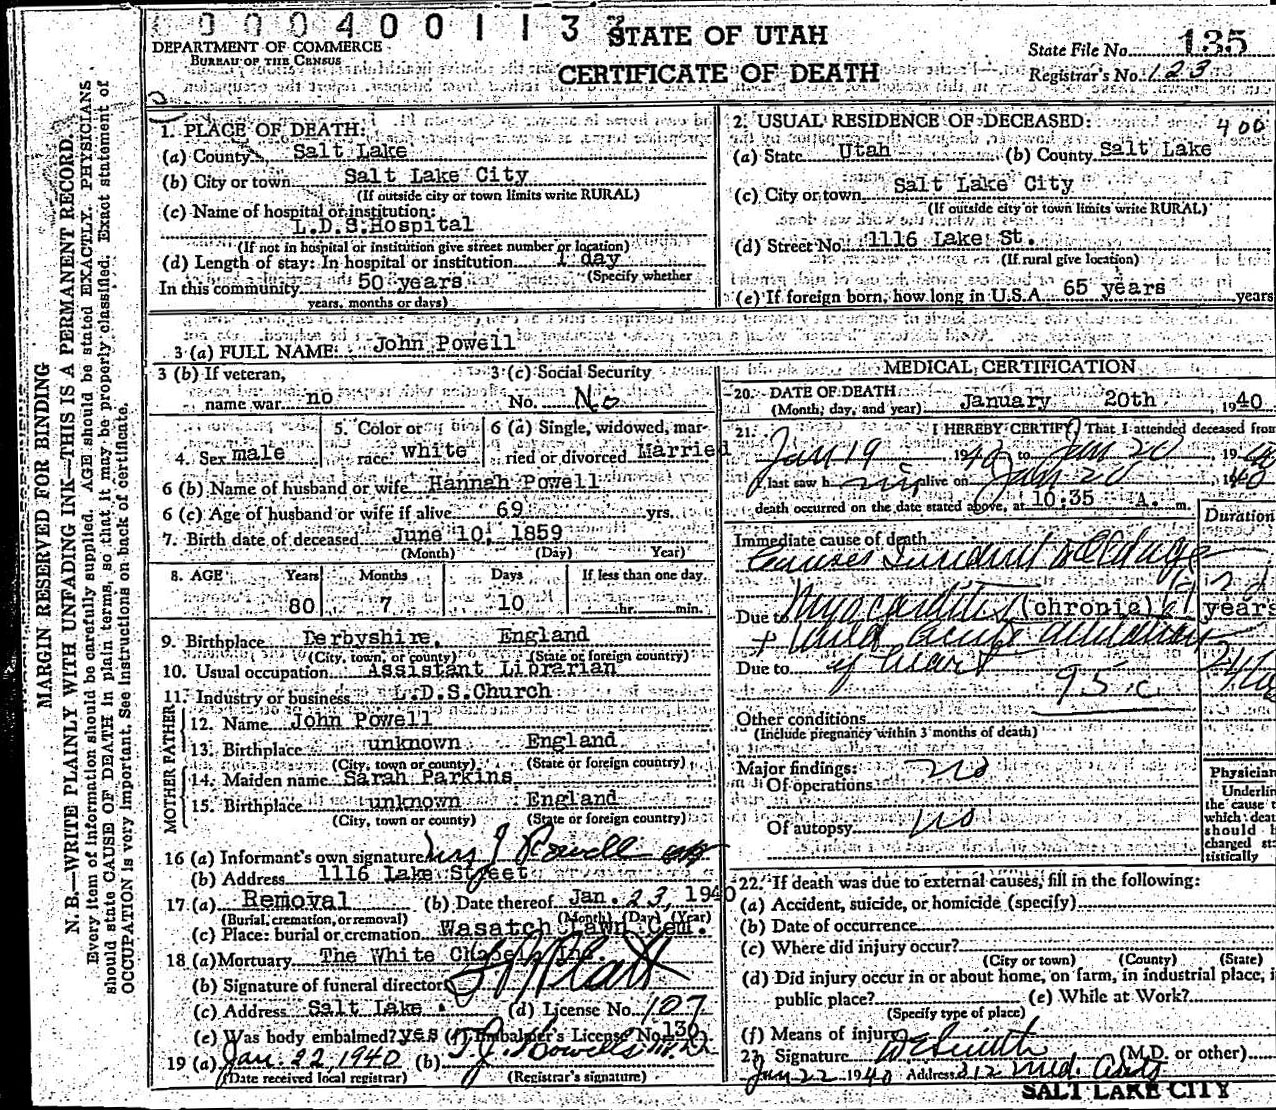 0 0 0 4 0 0 1 1 3
STATE OF UTAH
DEPARTMENT OF COMMERCE
BUREAU OF THE CENSUS
CERTIFICATE OF DEATH
State File No. 135
Registrar's No. 123
MARGIN RESERVED FOR BINDING
N. B.—WRITE PLAINLY WITH UNFADING INK—THIS IS A PERMANENT RECORD.
Every item of information should be carefully supplied. AGE should be stated EXACTLY. PHYSICIANS
should state CAUSE OF DEATH in plain terms, so that it may be properly classified. Exact statement of
OCCUPATION is very important. See instructions on back of certificate.
1. PLACE OF DEATH:
(a) County Salt Lake
(b) City or town Salt Lake City
(If outside city or town limits write RURAL)
(c) Name of hospital or institution:
L.D.S. Hospital
(If not in hospital or institution give street number or location)
(d) Length of stay: In hospital or institution 1 day
(Specify whether
In this community 50 years
years, months or days)
2. USUAL RESIDENCE OF DECEASED: 400
(a) State Utah (b) County Salt Lake
(c) City or town Salt Lake City
(If outside city or town limits write RURAL)
(d) Street No. 1116 Lake St.
(If rural give location)
(e) If foreign born, how long in U.S.A 65 years years
3 (a) FULL NAME: John Powell
3 (b) If veteran,
name war no
3 (c) Social Security
No. No
4. Sex male
5. Color or
race white
6 (a) Single, widowed, mar-
ried or divorced Married
6 (b) Name of husband or wife Hannah Powell
6 (c) Age of husband or wife if alive 69 yrs.
7. Birth date of deceased June 10, 1859
(Month) (Day) (Year)
8. AGE Years Months Days If less than one day
80 7 10 hr. min.
9. Birthplace Derbyshire, England
(City, town, or county) (State or foreign country)
10. Usual occupation Assistant Librarian
11. Industry or business L.D.S. Church
FATHER
12. Name John Powell
13. Birthplace unknown England
(City, town or county) (State or foreign country)
MOTHER
14. Maiden name Sarah Parkins
15. Birthplace unknown England
(City, town or county) (State or foreign country)
16 (a) Informant's own signature Mrs J Powell
(b) Address 1116 Lake Street
17 (a) Removal (b) Date thereof Jan. 23, 1940
(Burial, cremation, or removal) (Month) (Day) (Year)
(c) Place: burial or cremation Wasatch Lawn Cem.
18 (a) Mortuary The White Chapel
(b) Signature of funeral director
(c) Address Salt Lake (d) License No. 107
(e) Was body embalmed? yes (f) Embalmer's License No. 136
19 (a) Jan. 22, 1940 (b) T. J. Howells M.D.
(Date received local registrar) (Registrar's signature)
MEDICAL CERTIFICATION
20. DATE OF DEATH
(Month, day, and year) January 20th 1940
21. I HEREBY CERTIFY, That I attended deceased from
Jan 19 1940 to Jan 20 1940
I last saw him alive on Jan 20 1940
death occurred on the date stated above, at 10:35 A. m.
Duration
Immediate cause of death
Causes Incident to Old age
Due to Myocarditis (chronic) years
+ mild acute dilatation
Due to of heart
95 c
Other conditions
(Include pregnancy within 3 months of death)
Major findings:
Of operations no
Of autopsy no
Physician
Underlin
the cause t
which deat
should b
charged sta
tistically
22. If death was due to external causes, fill in the following:
(a) Accident, suicide, or homicide (specify)
(b) Date of occurrence
(c) Where did injury occur?
(City or town) (County) (State)
(d) Did injury occur in or about home, on farm, in industrial place, i
public place? (e) While at Work?
(Specify type of place)
(f) Means of injury
23. Signature (M.D. or other)
Jan 22 1940 Address 312 Med. Arts
SALT LAKE CITY